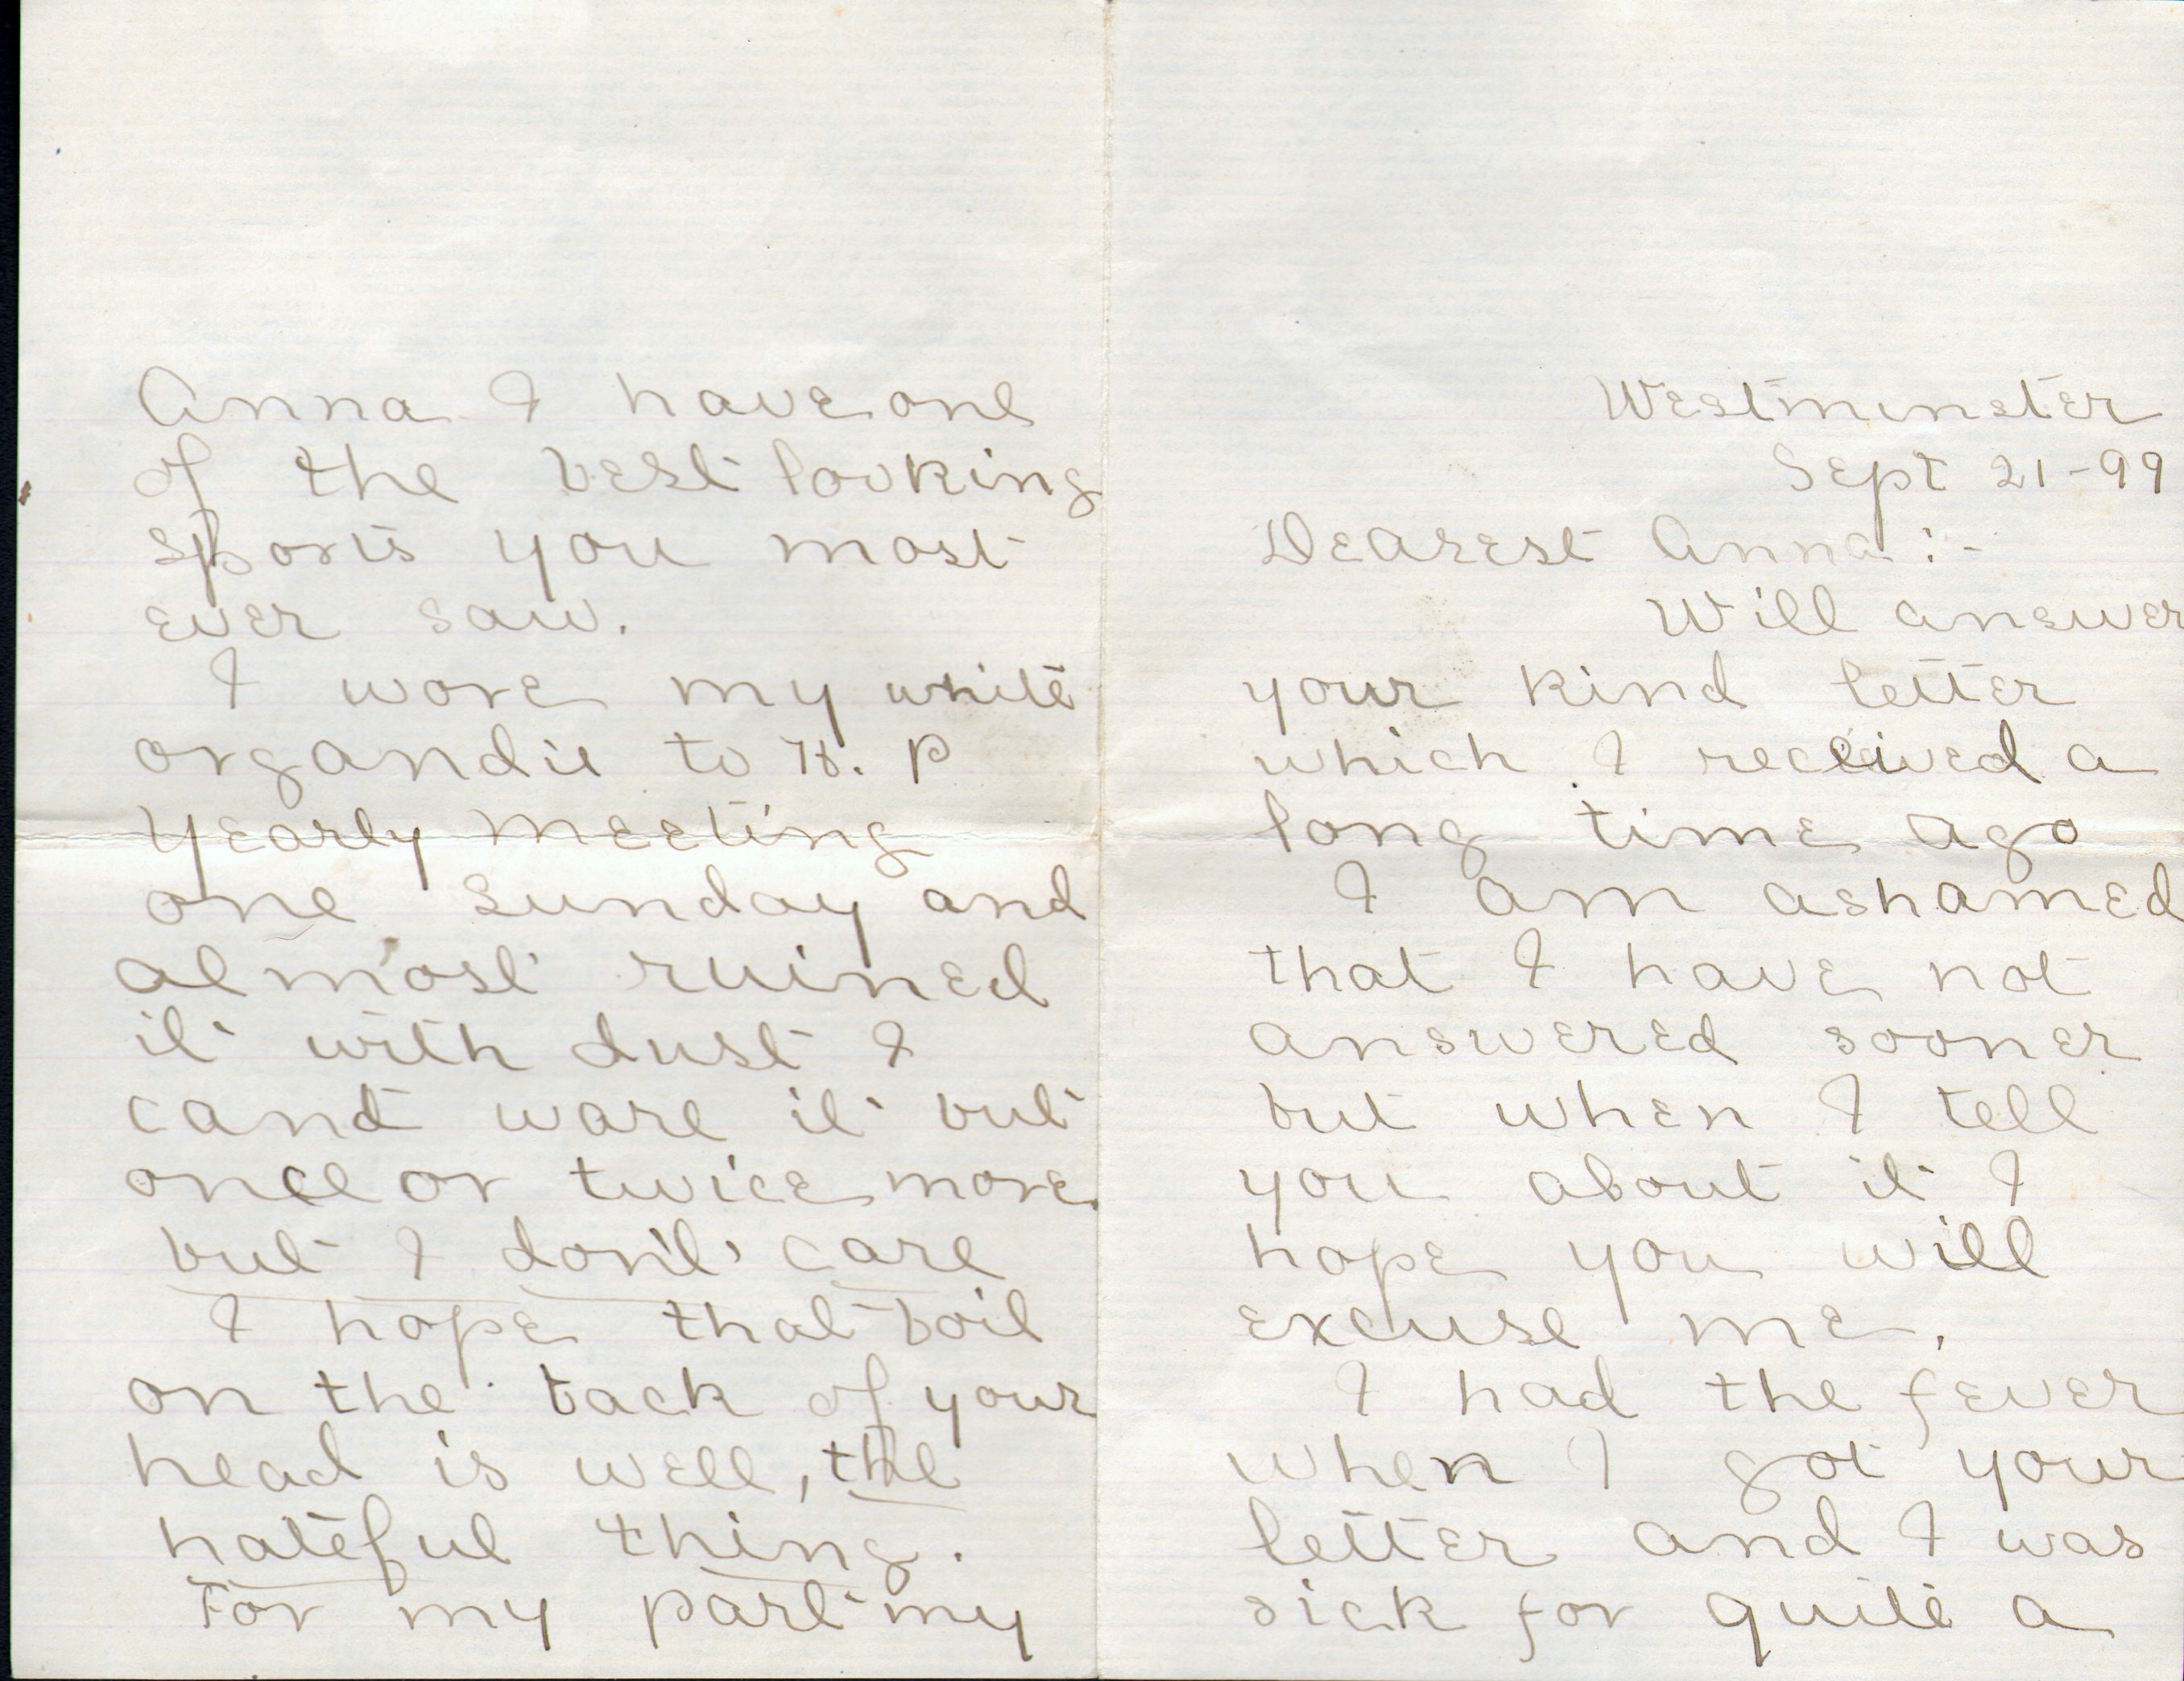 Westminster
Sept 21-99
Dearest Anna:-
Will answer
your kind letter
which I received a
long time ago
I am ashamed
that I have not
answered sooner
but when I tell
you about it I
hope you will
excuse me.
I had the fever
when I got your
letter and I was
sick for quite a
Anna I have one
of the best looking
sports you most
ever saw.
I wore my white
organdie to H. P
Yearly Meeting
one Sunday and
almost ruined
it with dust I
cant ware it but
once or twice more
but I don't care
I hope that boil
on the back of your
head is well, the
hateful thing.
For my part my